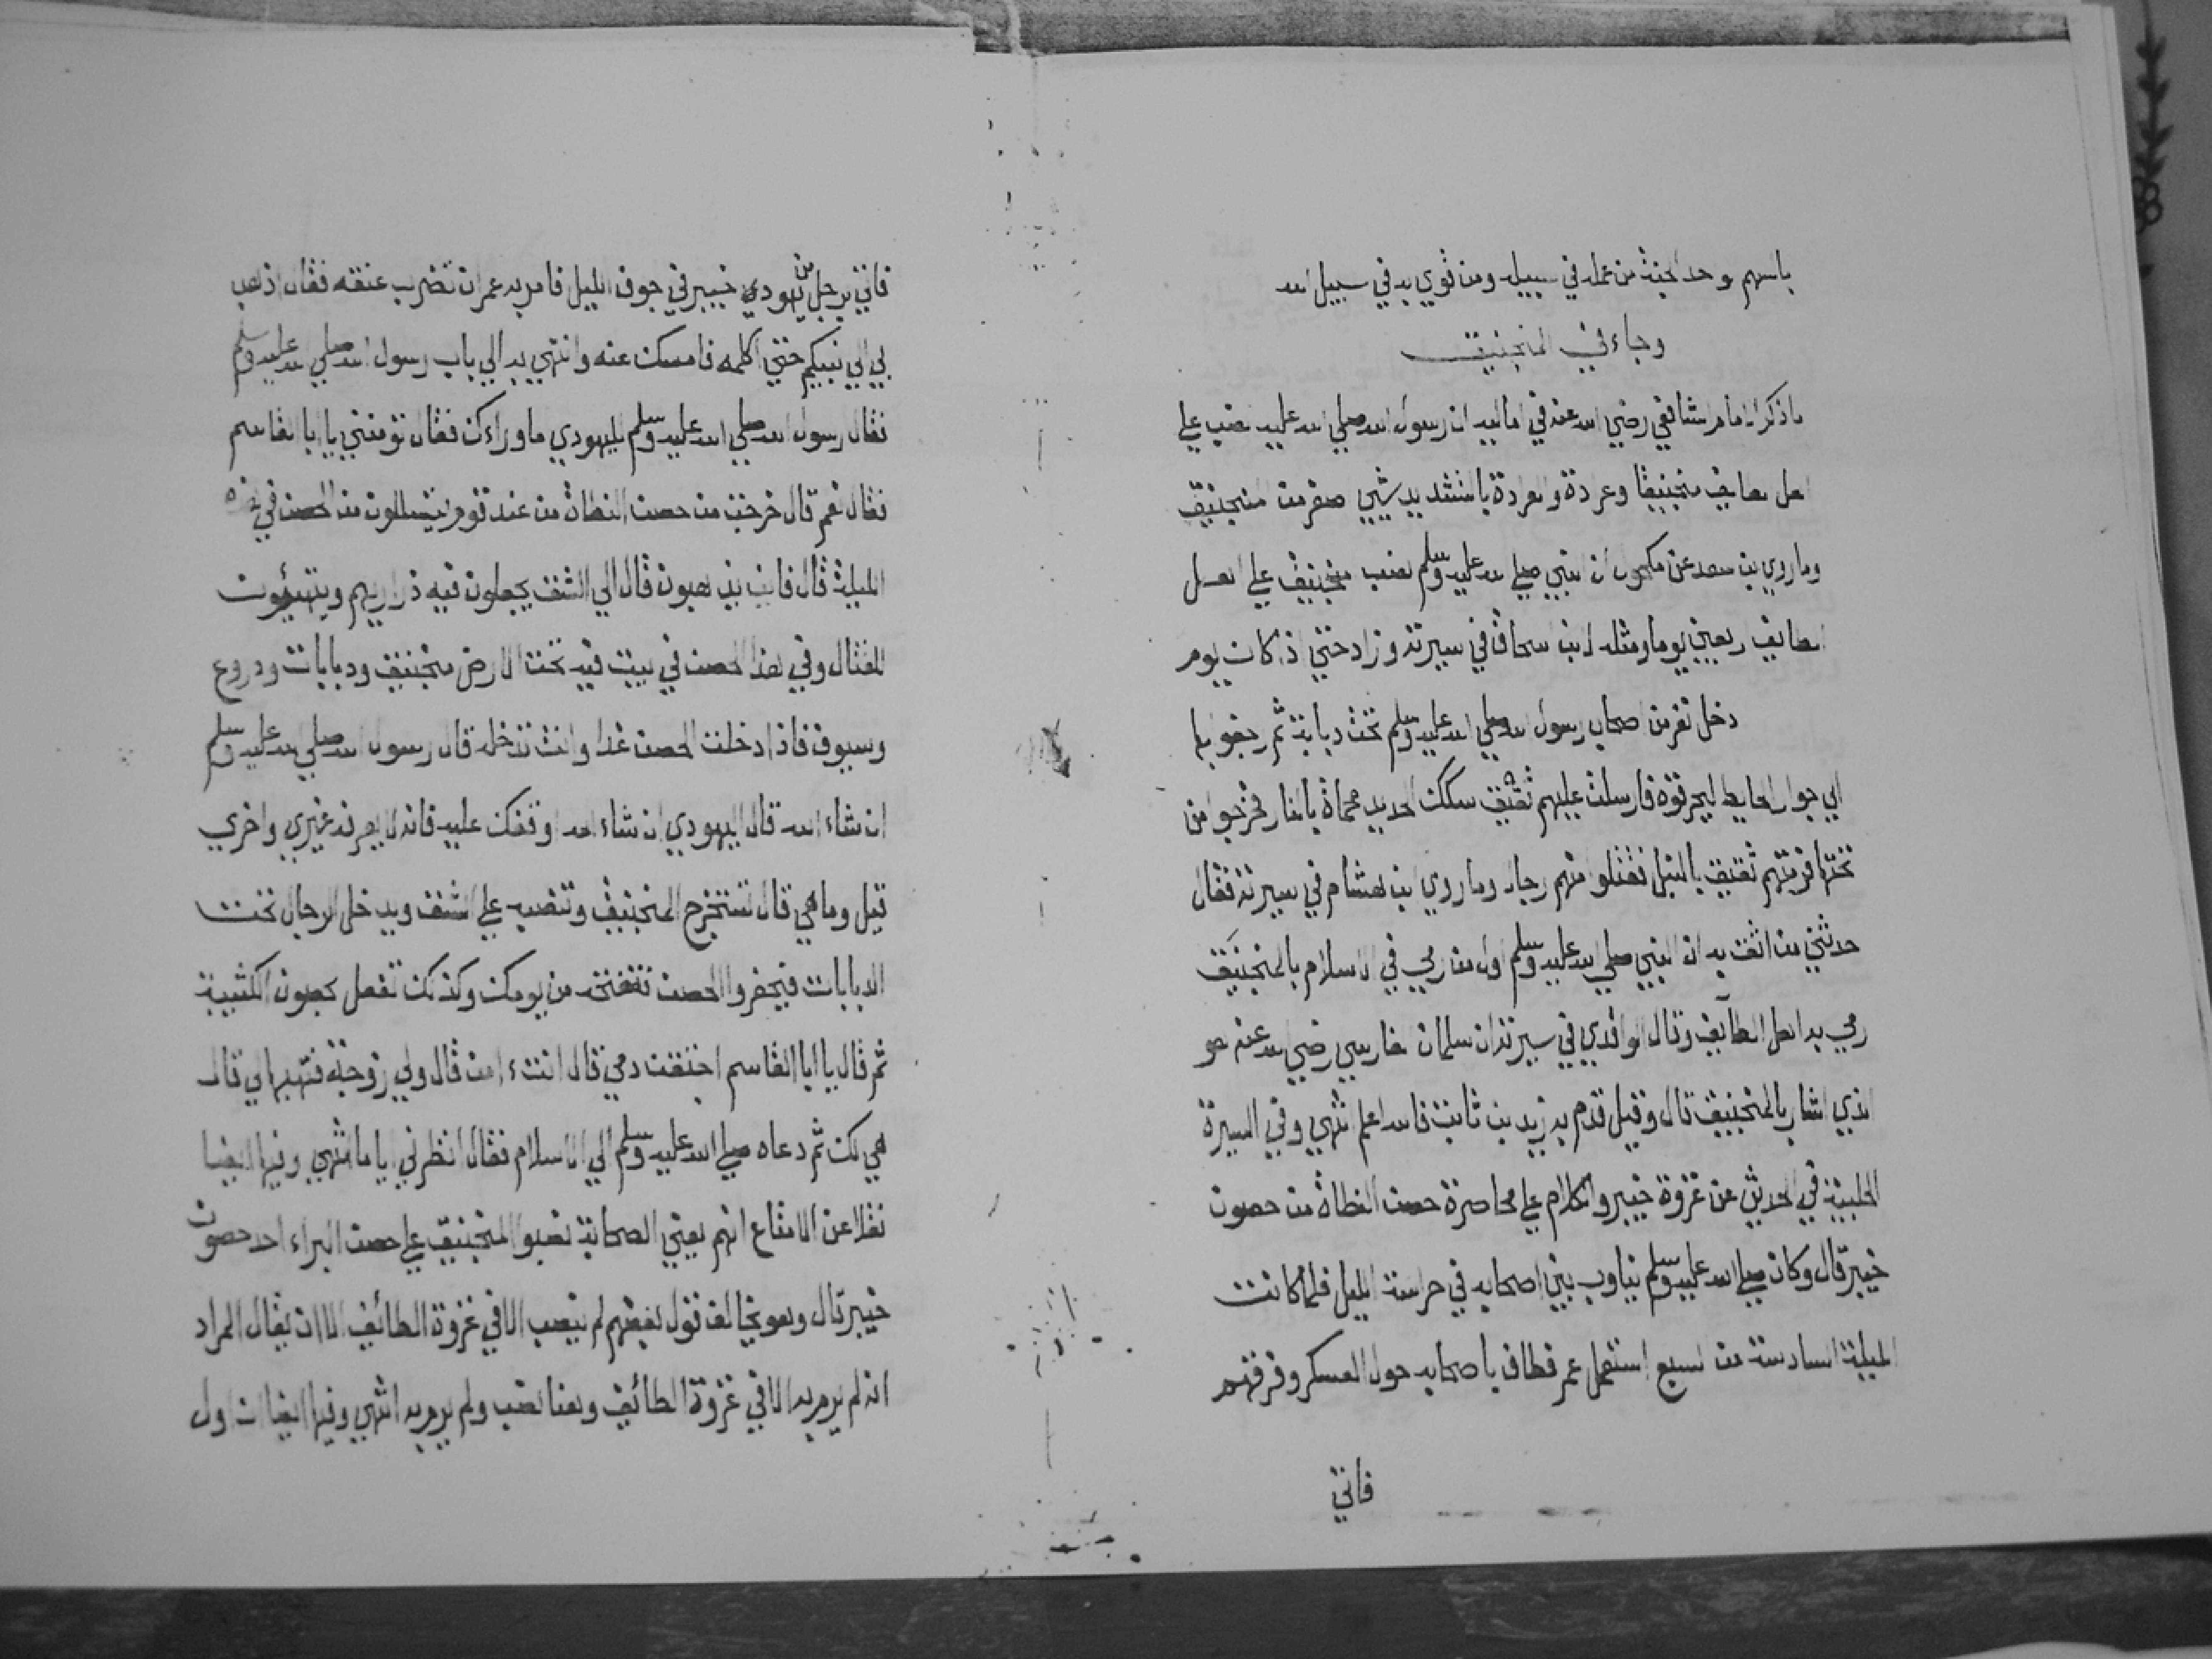 باسهم وحد الجنة من عمله في سبيله ومن قوي به في سبيل الله
وجاء في المنجنيق
ما ذكر الامام الشافعي رضي الله عنه في اماليه ان رسول الله صلي الله عليه نصب علي
اهل الطايف منجنيقا وعردة والعردة بالتشديد شيي صغر من المنجنيق
وما روي بن سعد عن مكحول ان النبي صلي الله عليه وسلم نصب منجنيق علي اهل
الطايف ربعين يوما ومثله لابن اسحاق في سيرته وزاد حتي اذ كان يوم
دخل نفر من اصحاب رسول الله صلي الله عليه وسلم تحت دبابة ثم رجفو بها
الي جوار الحايط ليحرقوه فارسلت عليهم ثقيف سكك الحديد محماة بالنار فخرجو من
تحتها فرمتهم ثقيف بالنبل فقتلو منهم رجال وما روي بن هشام في سيرته فقال
حدثني من اثق به ان النبي صلي الله عليه وسلم اول من رمي في الاسلام بالمنجنيق
رمي به اهل الطآيف وقال الواقدي في سيرته ان سلمان الفارسي رضي الله عنه هو
الذي اشار بالمنجنيق قال وقيل قدم به زيد بن ثابت فالله اعلم انتهي وفي السيرة
الحلبية في الحديث عن غزوة خيبر والكلام علي محاصرة حصن النطاة من حصون
خيبر قال وكان صلي الله عليه وسلم يناوب بين اصحابه في حراسة الليل فلما كانت
الليلة السادسة من السبع استعمل عمر فطاف باصحابه حول العسكر وفرقهم
فاتي
فاتي برجل من يهودي خيبر في جوف الليل فامر به عمر ان تضرب عنقه فقال اذهب
بي الي نبيكم حتي اكلمه فامسك عنه وانتهي به الي باب رسول الله صلي الله عليه وسلم
فقال رسول الله صلي الله عليه وسلم لليهودي ما وراءك فقال تؤمنني يا ابا القاسم
فقال نعم قال خرجت من حصن النطاة من عند قوم يتسللون من الحصن في هذه
الليلة قال فاين يذهبون قال الي الشق يجعلون فيه ذراريهم ويتهيؤن
للقتال وفي هذا الحصن في بيت فيه تحت الارض منجنيق ودبابات ودروع
وسيوف فاذا دخلت الحصن غدا وانت تدخله قال رسول الله صلي الله عليه وسلم
ان شاء الله قال اليهودي ان شاء الله اوقفك عليه فانه لا يعرفه غيري واخري
قيل وما هي قال تستخرج المنجنيق وتنصبه علي الشق ويدخل الرجال تحت
الدبابات فيحفروا الحصن تفتحه من يومك وكذلك تفعل بحصون الكثيبة
ثم قال يا ابا القاسم احقن دمي قال انت ءامن قال ولي زوجة فهبها لي قال
هي لك ثم دعاه صلي الله عليه وسلم الي الاسلام فقال انظرني اياما انتهي وفيها ايضا
نقلا عن الامتاع انهم يعني الصحابة نصبو المنجنيق علي حصن البراء احد حصون
خيبر قال وهو يخالف قول بعضهم لم ينصب الا في غزوة الطائف الا ان يقال المراد
انه لم يرم به الا في غزوة الطائف وهنا نصب ولم يرم به انتهي وفيها ايضا ان اول